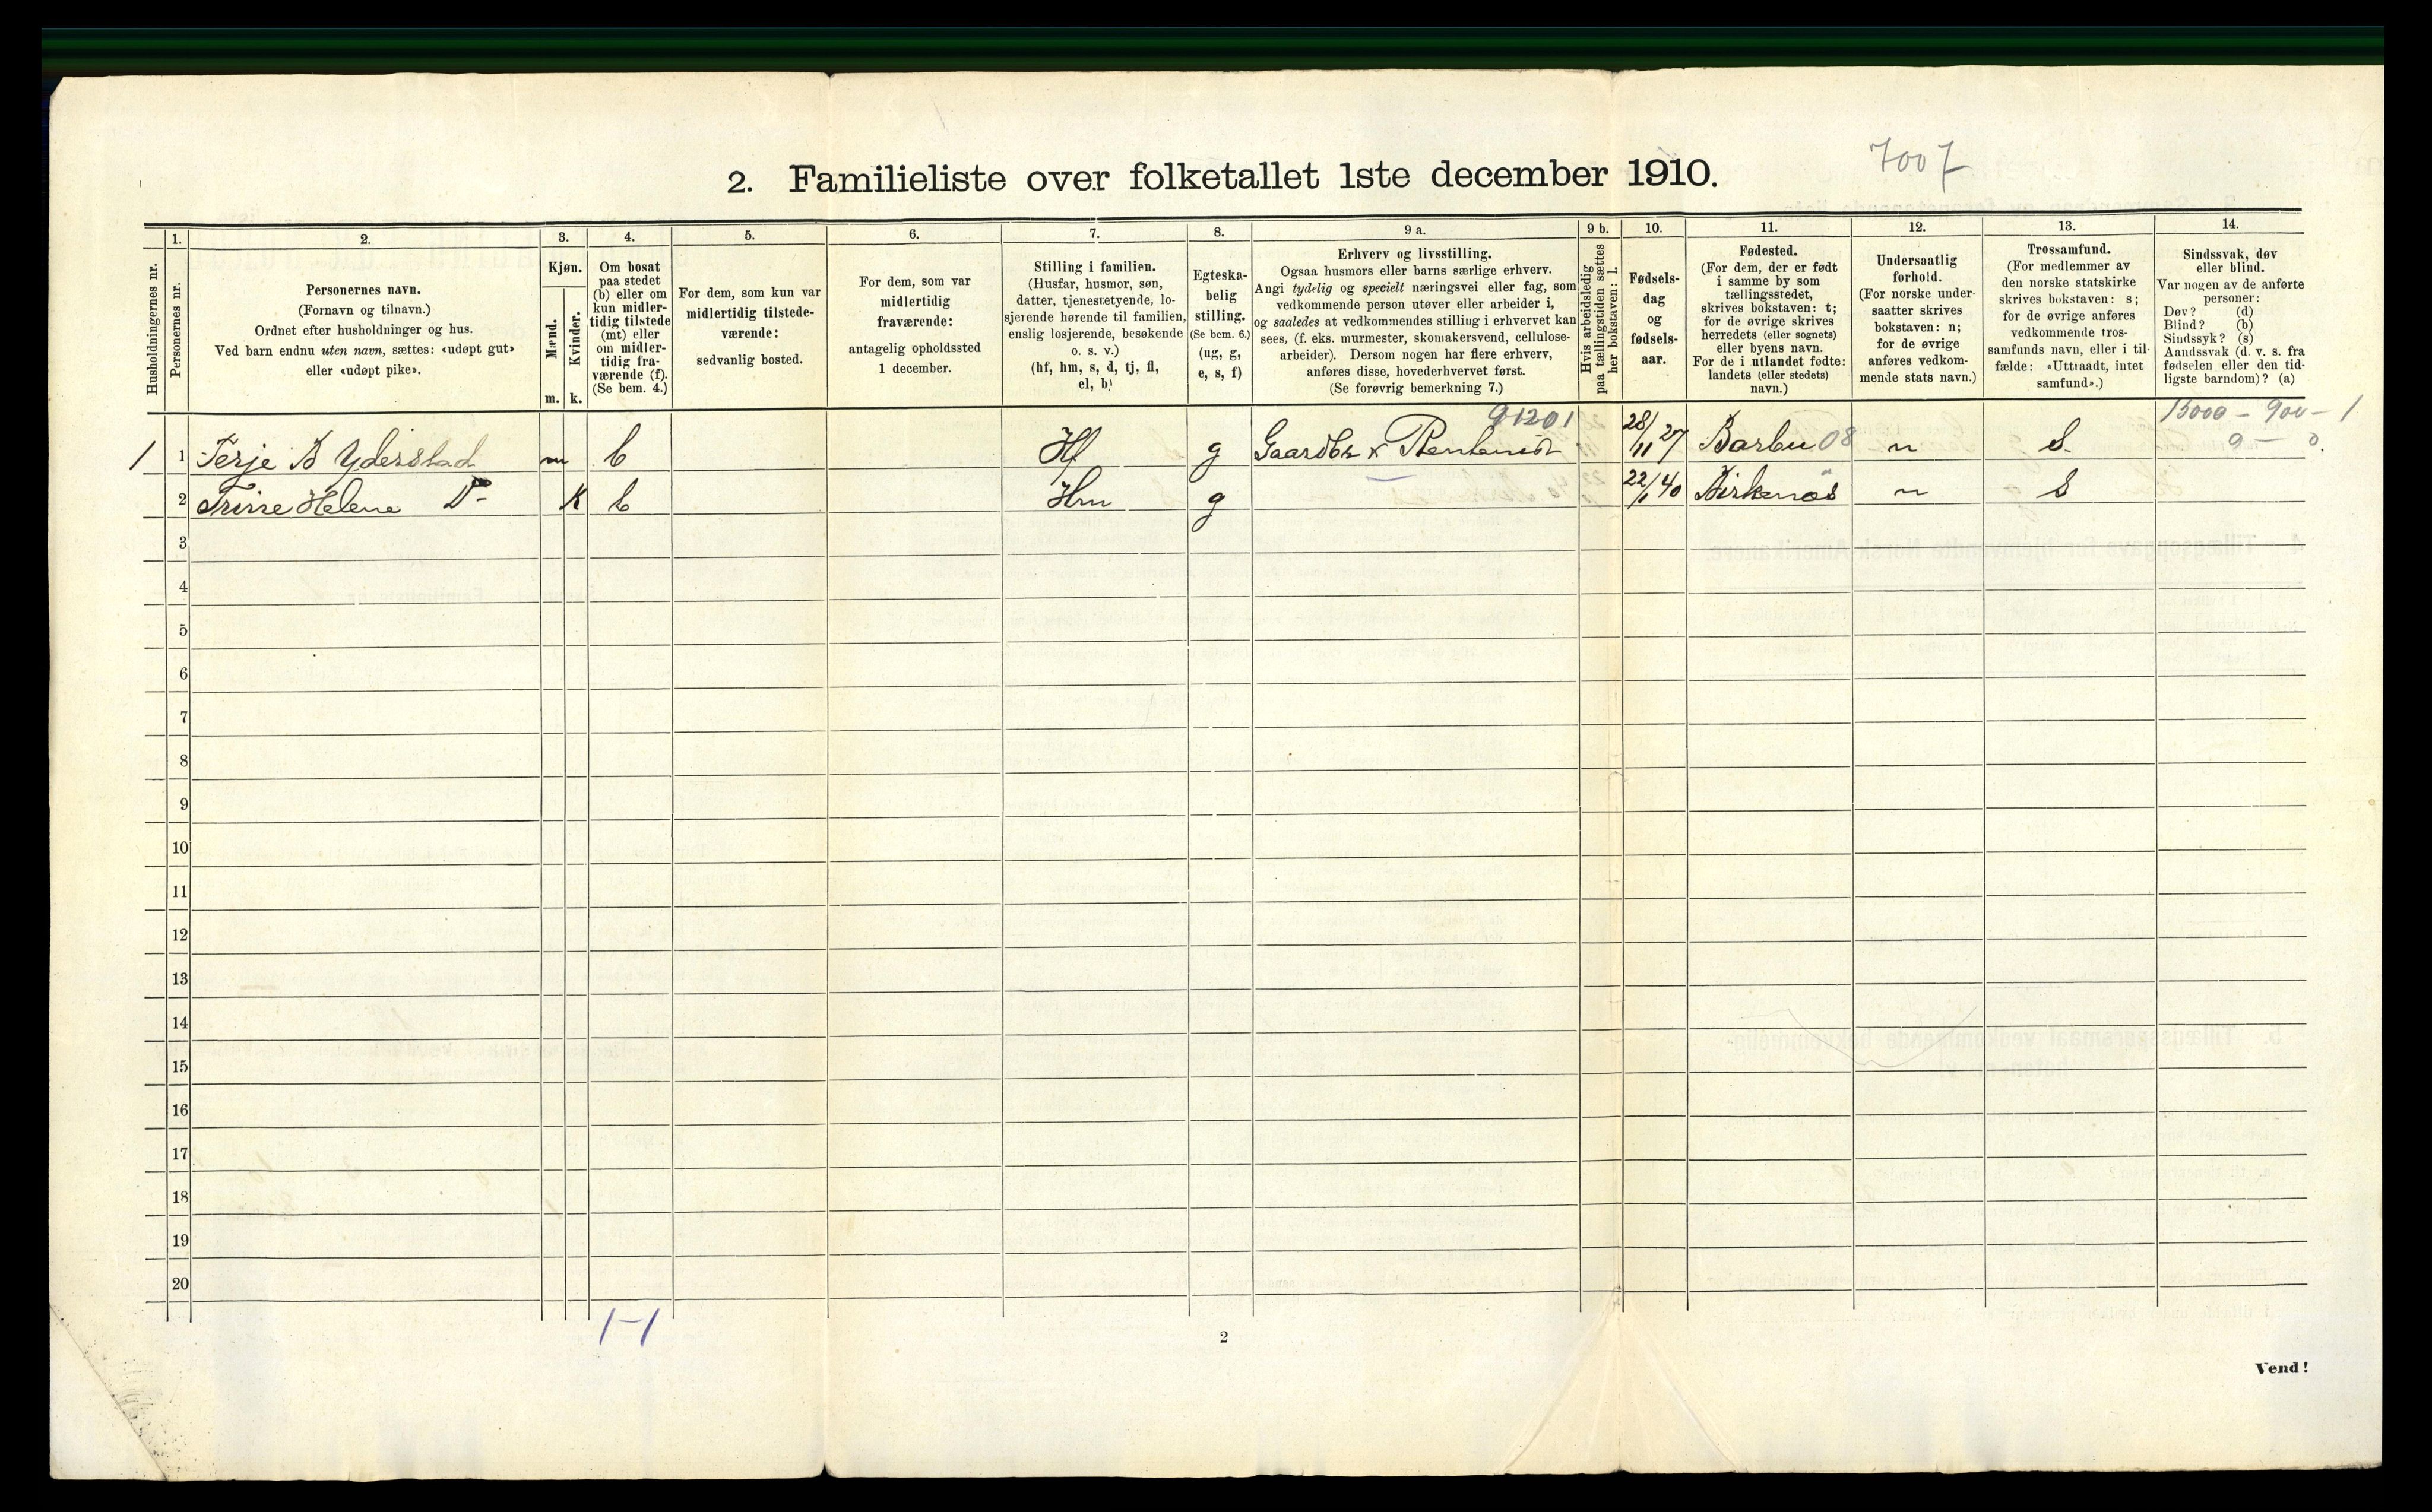 7007
2. Familieliste over folketallet 1ste december 1910.
Husholdningernes nr.
1.
Personernes nr.
2.
Personernes navn.
(Fornavn og tilnavn.)
Ordnet efter husholdninger og hus.
Ved barn endnu uten navn, sættes: «udøpt gut»
eller «udøpt pike».
3.
Kjøn.
Mænd.
Kvinder.
m. k.
4.
Om bosat
paa stedet
(b) eller om
kun midler-
tidig tilstede
(mt) eller
om midler-
tidig fra-
værende (f).
(Se bem. 4.)
5.
For dem, som kun var
midlertidig tilstede-
værende:
sedvanlig bosted.
6.
For dem, som var
midlertidig
fraværende:
antagelig opholdssted
1 december.
7.
Stilling i familien.
(Husfar, husmor, søn,
datter, tjenestetyende, lo-
sjerende hørende til familien,
enslig losjerende, besøkende
o. s. v.)
(hf, hm, s, d, tj, fl,
el, b)
8.
Egteska-
belig
stilling.
(Se bem. 6.)
(ug, g,
e, s, f)
9 a.
Erhverv og livsstilling.
Ogsaa husmors eller barns særlige erhverv.
Angi tydelig og specielt næringsvei eller fag, som
vedkommende person utøver eller arbeider i,
og saaledes at vedkommendes stilling i erhvervet kan
sees, (f. eks. murmester, skomakersvend, cellulose-
arbeider). Dersom nogen har flere erhverv,
anføres disse, hovederhvervet først.
(Se forøvrig bemerkning 7.)
9 b.
Hvis arbeidsledig
paa tællingstiden sættes
her bokstaven: l.
10.
Fødsels-
dag
og
fødsels-
aar.
11.
Fødested.
(For dem, der er født
i samme by som
tællingsstedet,
skrives bokstaven: t;
for de øvrige skrives
herredets (eller sognets)
eller byens navn.
For de i utlandet fødte:
landets (eller stedets)
navn.)
12.
Undersaatlig
forhold.
(For norske under-
saatter skrives
bokstaven: n;
for de øvrige
anføres vedkom-
mende stats navn.)
13.
Trossamfund.
(For medlemmer av
den norske statskirke
skrives bokstaven: s;
for de øvrige anføres
vedkommende tros-
samfunds navn, eller i til-
fælde: «Uttraadt, intet
samfund».)
14.
Sindssvak, døv
eller blind.
Var nogen av de anførte
personer:
Døv? (d)
Blind? (b)
Sindssyk? (s)
Aandssvak (d. v. s. fra
fødselen eller den tid-
ligste barndom)? (a)
91201
1 1 Terje B Yderstad m b Hf g Gaardbr x Rentenist 28/11 27 Barbu 08 n S. 0 - 0
2 Helene Do K b Hm g - 22/1 40 Birkenæs n S
3
4
5
6
7
8
9
10
11
12
13
14
15
16
17
18
19
20
1-1
2
Vend!